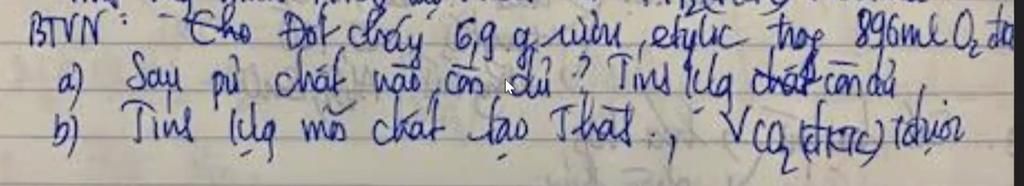 BTVN: Cho Đốt cháy 6,9 g rượu etylic trog 896ml O2 đktc
a) Sau pứ chất nào còn dư? Tính klg chất còn dư,
b) Tính klg mỗi chất tạo Thành., VCO2 (đktc) (được